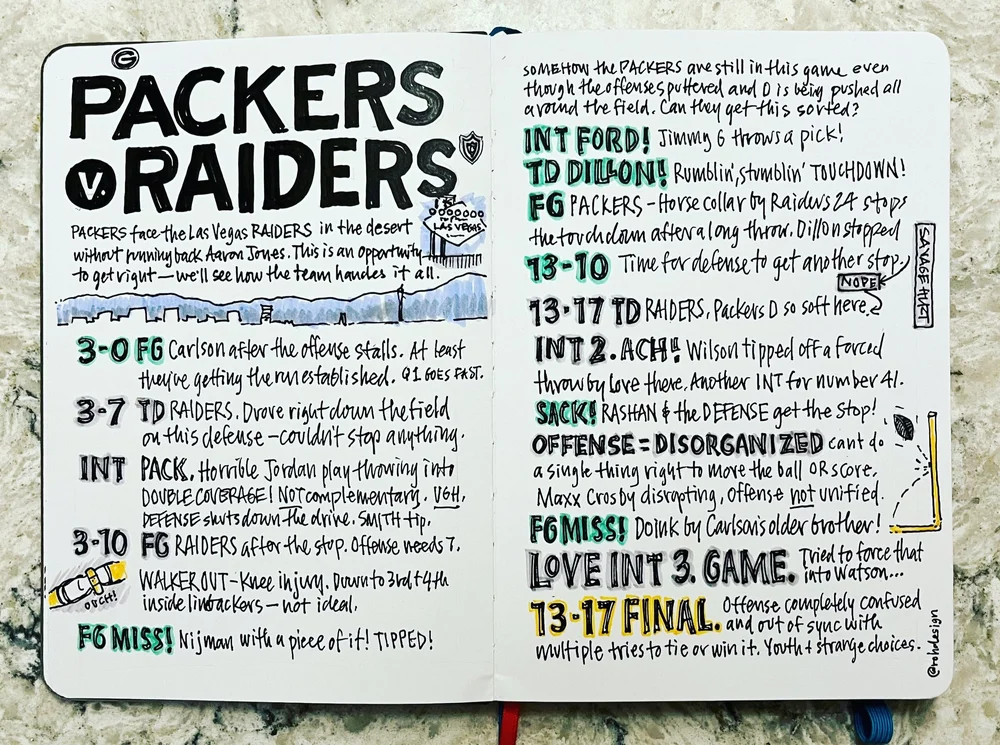 G
PACKERS
V. RAIDERS
TO Fab
LAS VEGAS
PACKERS face the Las Vegas RAIDERS in the desert
without running back Aaron Jones. This is an opportunity
to get right—we'll see how the team handes it all.
3-0 FG Carlson after the offense stalls. At least
they're getting the run established. Q1 GOES FAST.
3-7 TD RAIDERS. Drove right down the field
on this defense—couldn't stop anything.
INT PACK. Horrible Jordan play throwing into
DOUBLE COVERAGE! NOT complementary. UGH.
DEFENSE shuts down the drive. SMITH tip.
3-10 FG RAIDERS after the stop. Offense needs 7.
WALKER OUT—Knee injury. Down to 3rd + 4th
inside linebackers—not ideal.
OUCH!
FG MISS! Nijman with a piece of it! TIPPED!
SOMEHOW the PACKERS are still in this game even
though the offenses puttered and D is being pushed all
around the field. Can they get this sorted?
INT FORD! Jimmy G throws a pick!
TD DILLON! Rumblin', stumblin' TOUCHDOWN!
FG PACKERS—Horse collar by Raiders 24 stops
the touchdown after a long throw. Dillon stopped
13-10 Time for defense to get another stop.
NOPE
SAVAGE HURT
13-17 TD RAIDERS, Packers D so soft here.
INT 2. ACH! Wilson tipped off a forced
throw by Love there. Another INT for number 41.
SACK! RASHAN & the DEFENSE get the stop!
OFFENSE = DISORGANIZED cant do
a single thing right to move the ball OR score.
Maxx Crosby disrupting, offense not unified.
FG MISS! Doink by Carlson's older brother!
LOVE INT 3. GAME. Tried to force that
into Watson...
13-17 FINAL. Offense completely confused
and out of sync with
multiple tries to tie or win it. Youth + strange choices.
@rohdesign